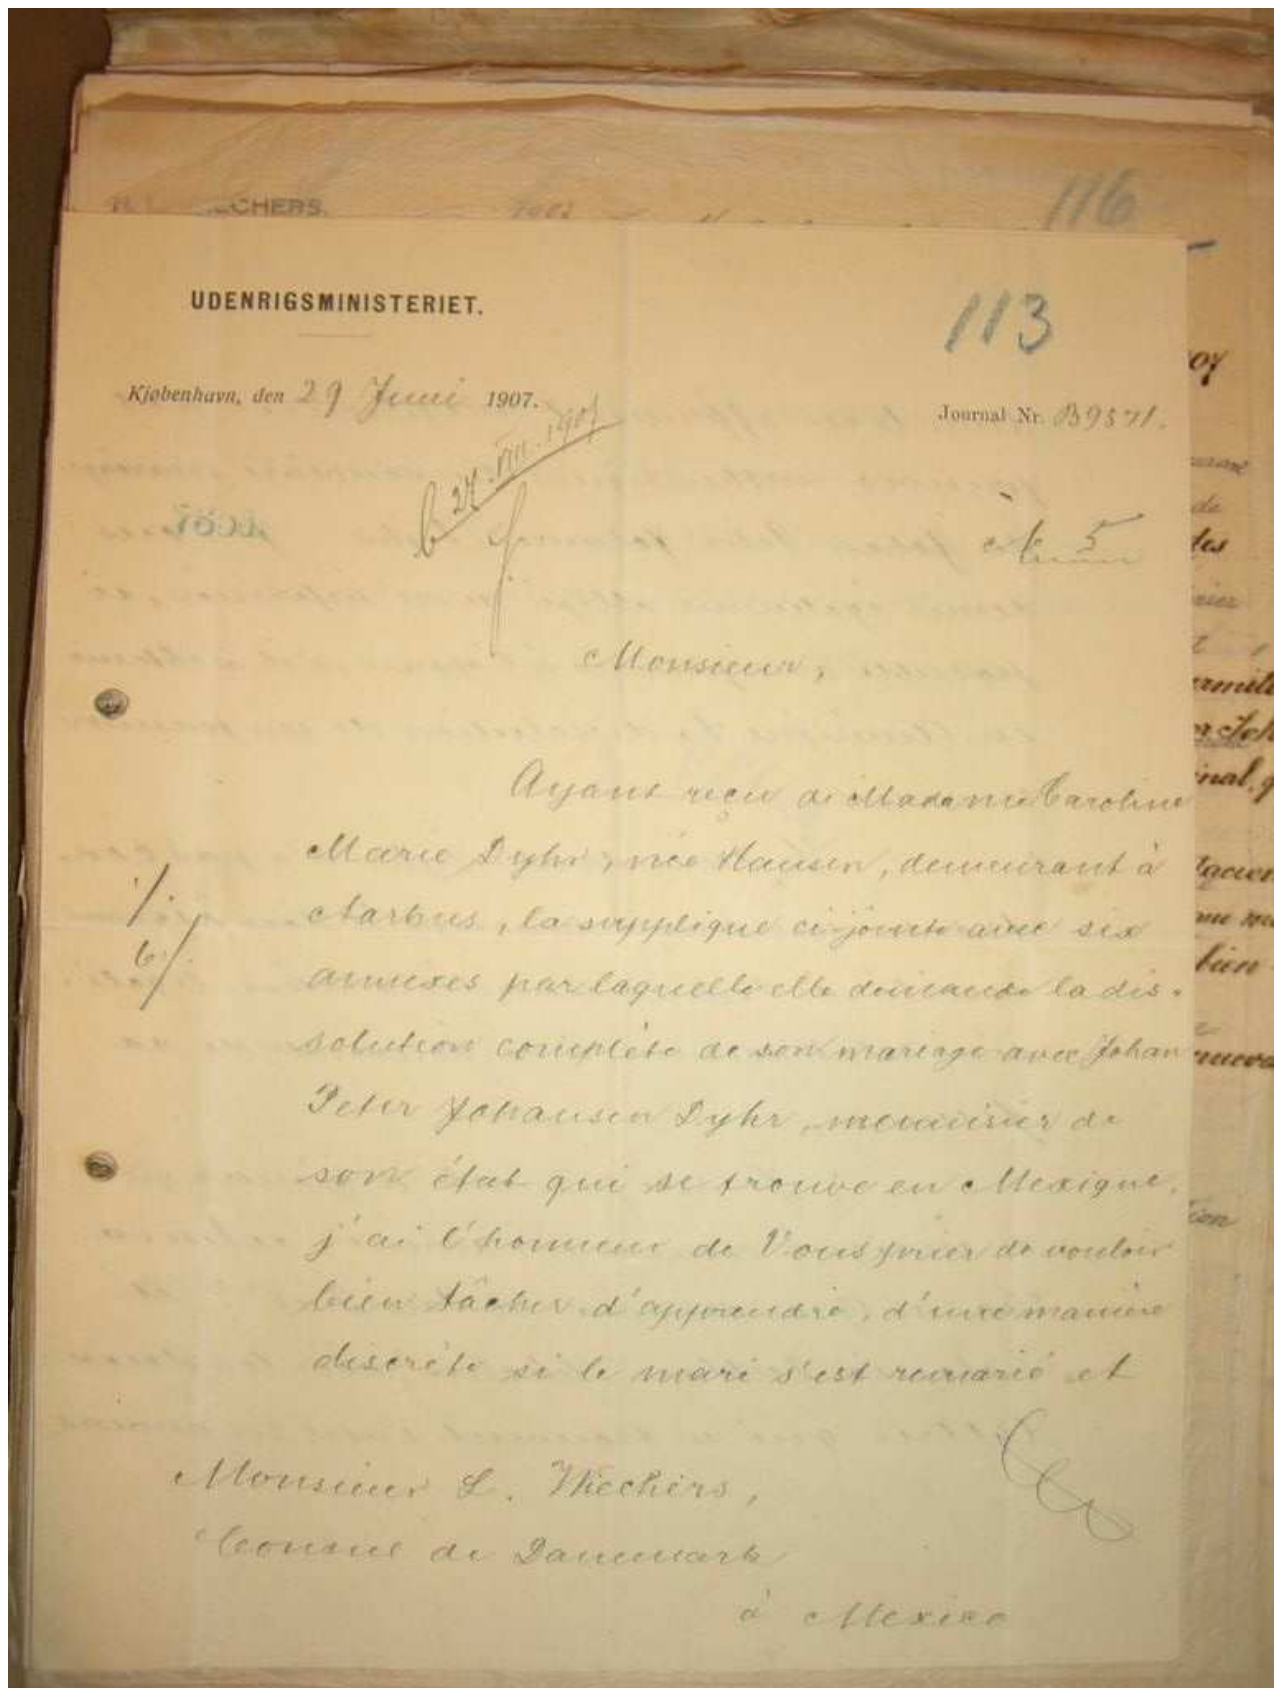 116
UDENRIGSMINISTERIET.
113
Kjøbenhavn, den 29 Juni 1907.
Journal Nr. B9571.
b 27. VIII. 1907
№ 5
Monsieur,
Ayant reçu de Madame Caroline
Marie Dyhr, née Hansen, demeurant à
Aarhus, la supplique ci-jointe avec six
annexes par laquelle elle demande la dis-
solution complète de son mariage avec Johan
Peter Johansen Dyhr, menuisier de
son état qui se trouve en Mexique,
j'ai l'honneur de Vous prier de vouloir
bien tâcher d'apprendre, d'une manière
discrète si le mari s'est remarié et
Monsieur L. Wiechers,
Consul de Danemark
à Mexico